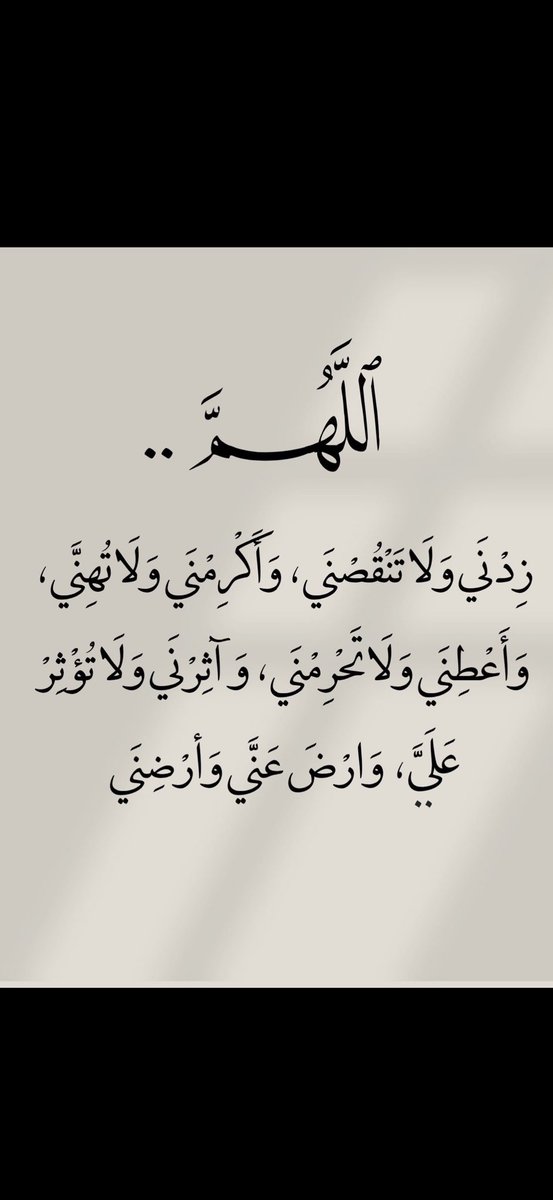 ٱللَّهُمَّ ..
زِدْنَي وَلَا تَنْقُصْنَي، وَأَكْرِمْنَي وَلَا تُهِنَّي،
وَأَعْطِنَي وَلَا تَحْرِمْنَي، وَآثِرْنَي وَلَا تُؤْثِرْ
عَلَيَّ، وَارْضَ عَنَّي وَأرْضِنَي